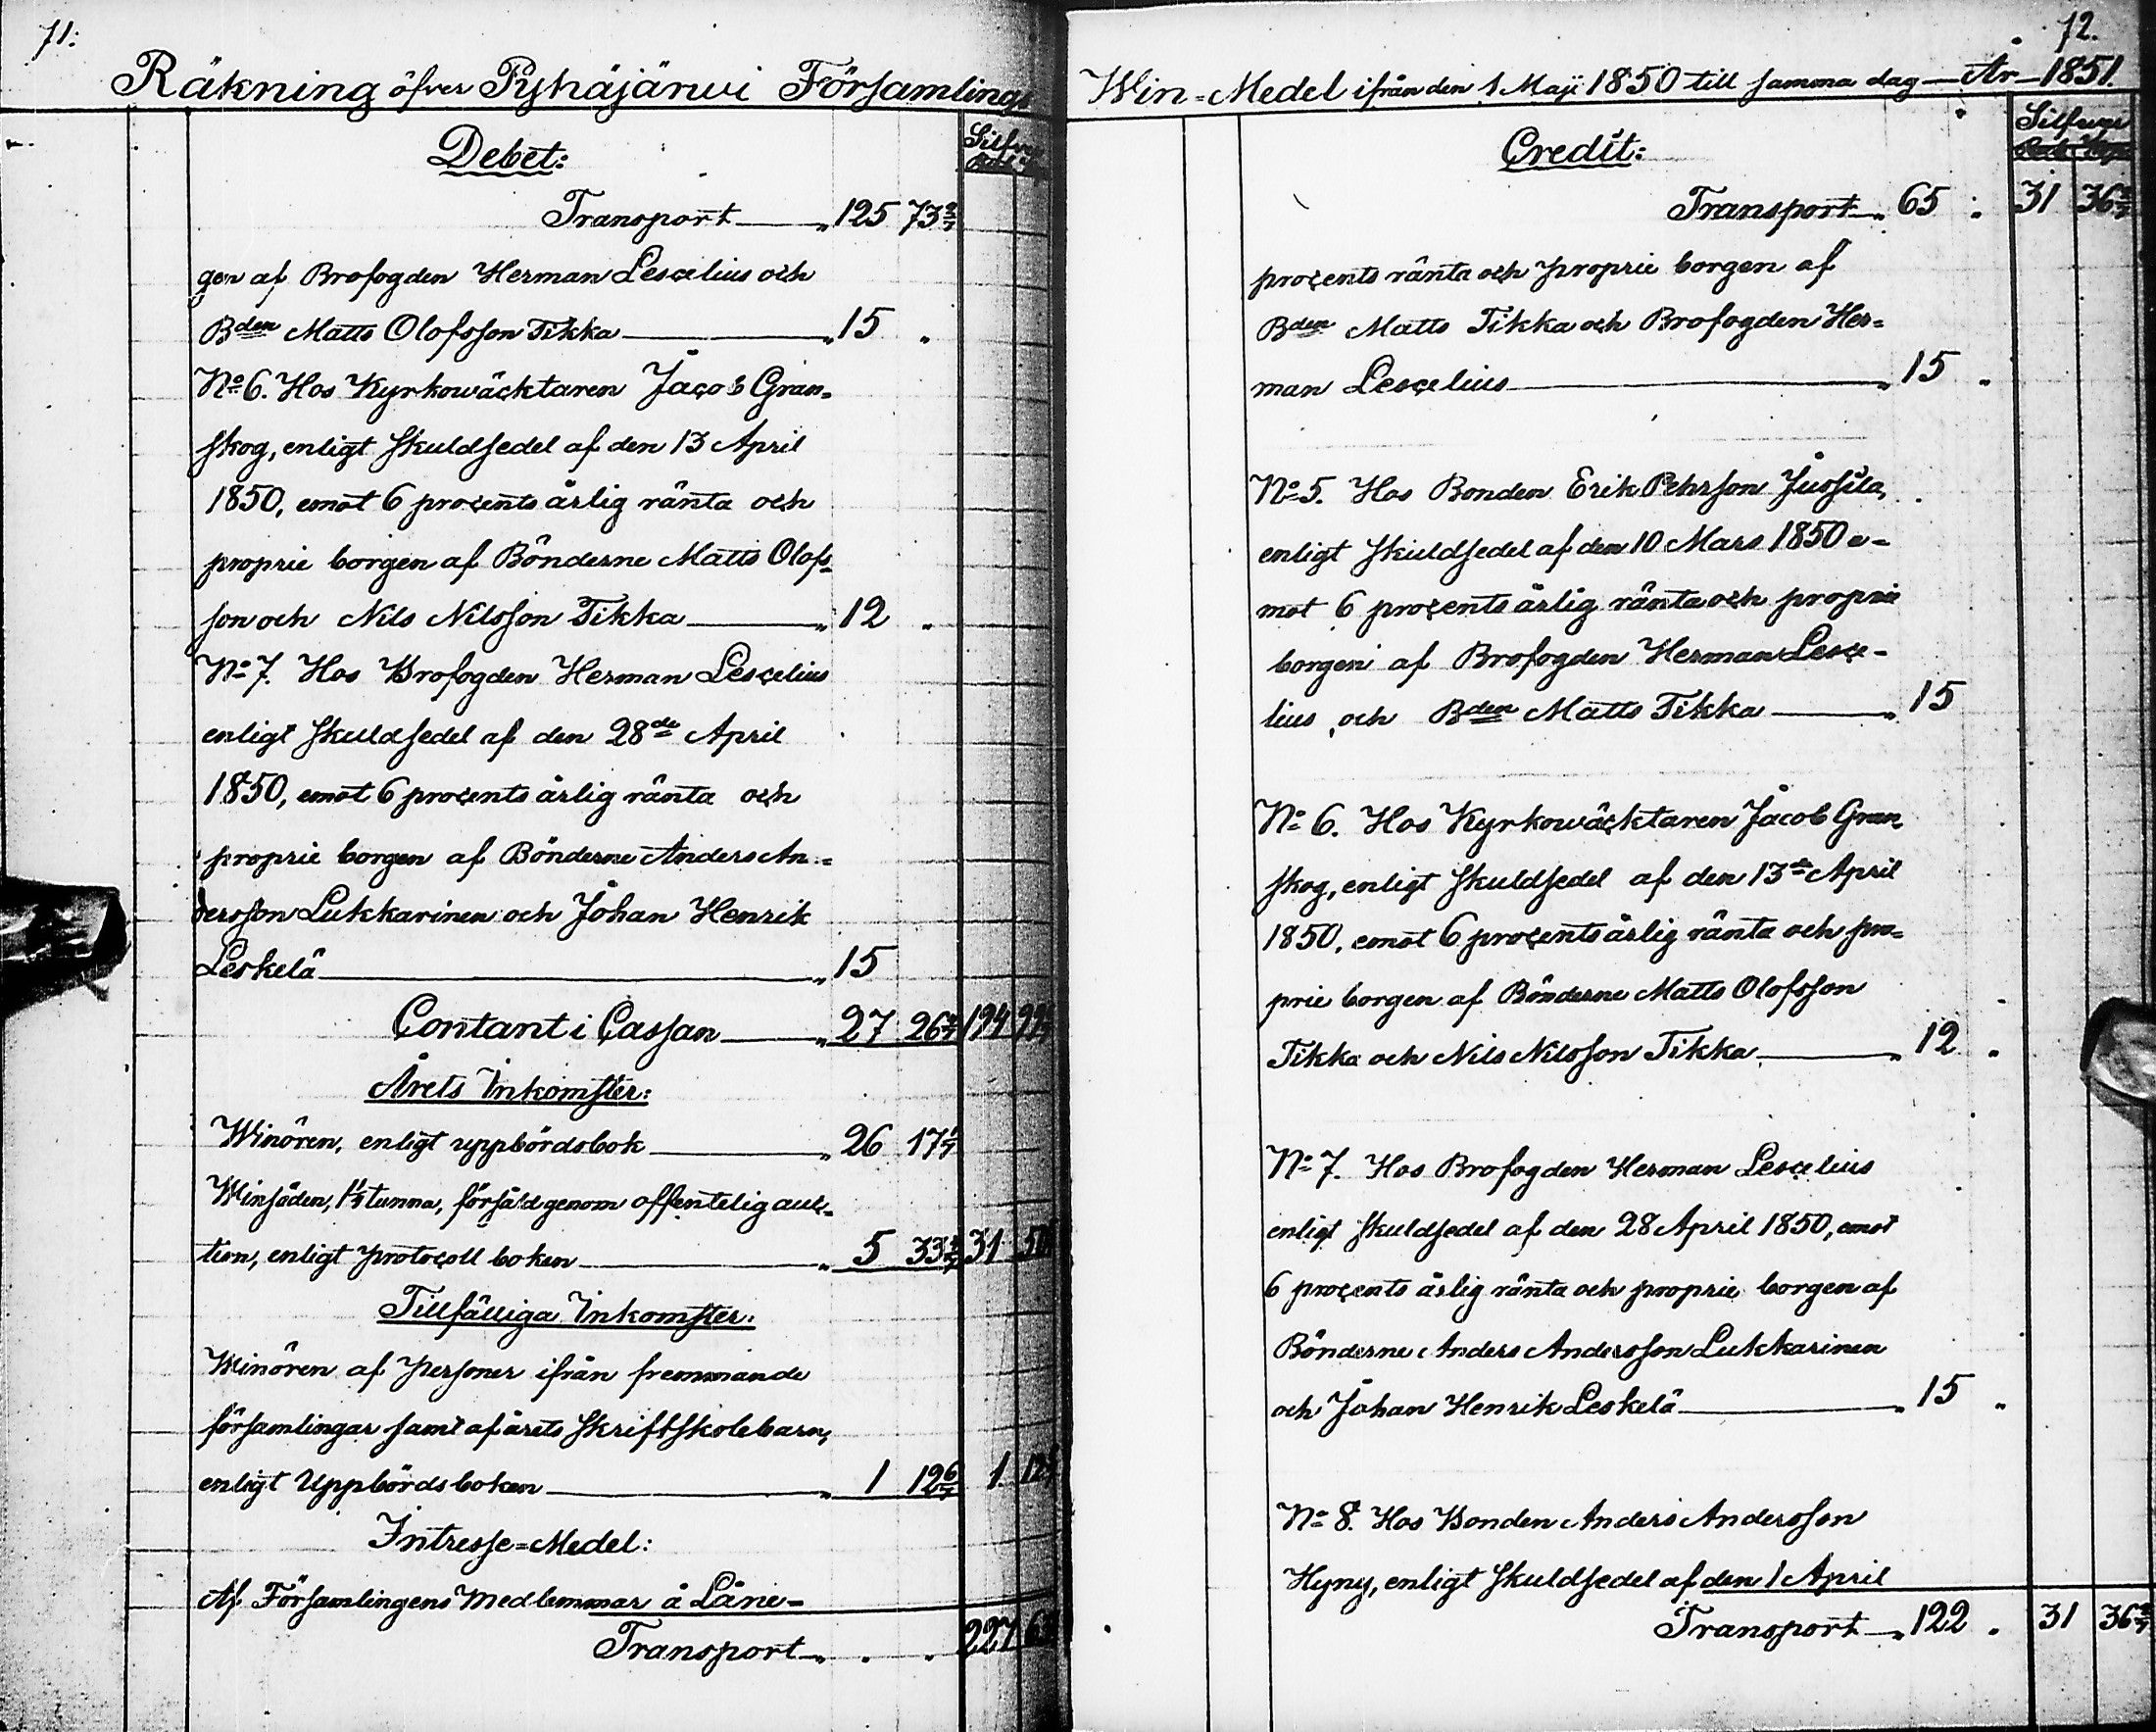 71:
Räkning öfver Pyhäjärwi Församlings
Debet:
Silfver
Transport 125 73 2/7
gen af Brofogden Herman Lescelius och
Bden Matts Olofsson Tikka 15 "
No 6. Hos Kyrkowäcktaren Jacob Gran-
skog, enligt skuldsedel af den 13 April
1850, emot 6 procents årlig ränta och
proprie borgen af Bönderne Matts Olofs-
son och Nils Nilsson Tikka 12 "
No 7. Hos Brofogden Herman Lescelius
enligt skuldsedel af den 28de April
1850, emot 6 procents årlig ränta och
proprie borgen af Bönderne Anders An-
dersson Lukkarinen och Johan Henrik
Leskelä 15
Contant i Cassan 27 26 194 99
Årets Inkomster:
Winören, enligt uppbördsbok 26 17 1/7
Winsäden, 1 1/2 tunna, försåld genom offentelig auk-
tion, enligt protocoll boken 5 33 31 50
Tillfälliga Inkomster:
Winören af Personer ifrån fremmande
församlingar samt af årets Skriftskolebarn,
enligt Uppbördsboken 1 12 6/7 1 12
Intresse-Medel:
Af Församlingens Medlemmar å Låne-
Transport " " 227
72.
Win-Medel ifrån den 1 Maji 1850 till samma dag År 1851.
Credit:
Silfver
Transport 65 " 31 36
procents ränta och proprie borgen af
Bden Matts Tikka och Brofogden Her-
man Lescelius 15 "
No 5. Hos Bonden Erik Pehrson Jussila,
enligt skuldsedel af den 10 Mars 1850 e-
mot 6 procents årlig ränta och proprie
borgen af Brofogden Herman Lesce-
lius, och Bden Matts Tikka 15
No 6. Hos Kyrkowäcktaren Jacob Gran-
skog, enligt skuldsedel af den 13de April
1850, emot 6 procents årlig ränta och pro-
prie borgen af Bönderne Matts Olofsson
Tikka och Nils Nilsson Tikka 12 "
No 7. Hos Brofogden Herman Lescelius
enligt skuldsedel af den 28 April 1850, emot
6 procents årlig ränta och proprie borgen af
Bönderne Anders Andersson Lukkarinen
och Johan Henrik Leskelä 15 "
No 8. Hos Bonden Anders Andersson
Hyny, enligt skuldsedel af den 1 April
Transport 122 " 31 36